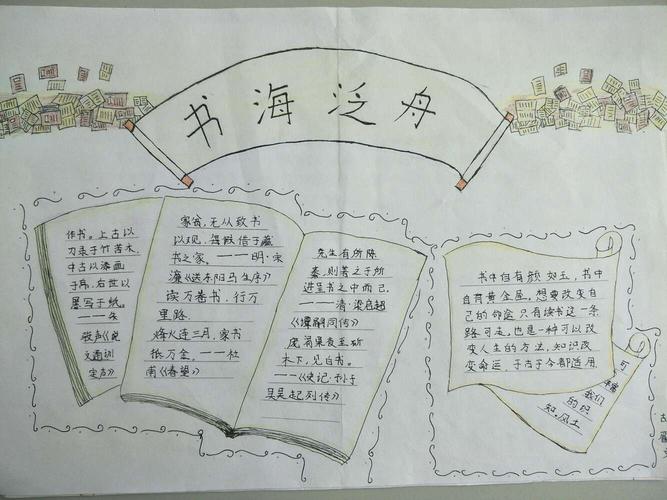 书海泛舟
作书。上古以
刀录于竹若木,
中古以漆画
于帛,后世以
墨写于纸。
——朱
骏声《说
文通训
定声》
家贫,无从致书
以观,每假借于藏
书之家,——明·宋
濂《送东阳马生序》
读万卷书,行万
里路.
烽火连三月,家书
抵万金,——杜
甫《春望》
先生有所陈
奏,则著之于所
进呈书之中而已.
——清·梁启超
《谭嗣同传》
庞涓果夜至斫
木下,见白书。
——《史记·孙子
吴起列传》
书中自有颜如玉,书中
自有黄金屋,想要改变自
己的命途只有读书这一条
路可走,也是一种可以改
变人生的方法,知识改
变命运,于古于今都适用
可
我们
的织
知,风土